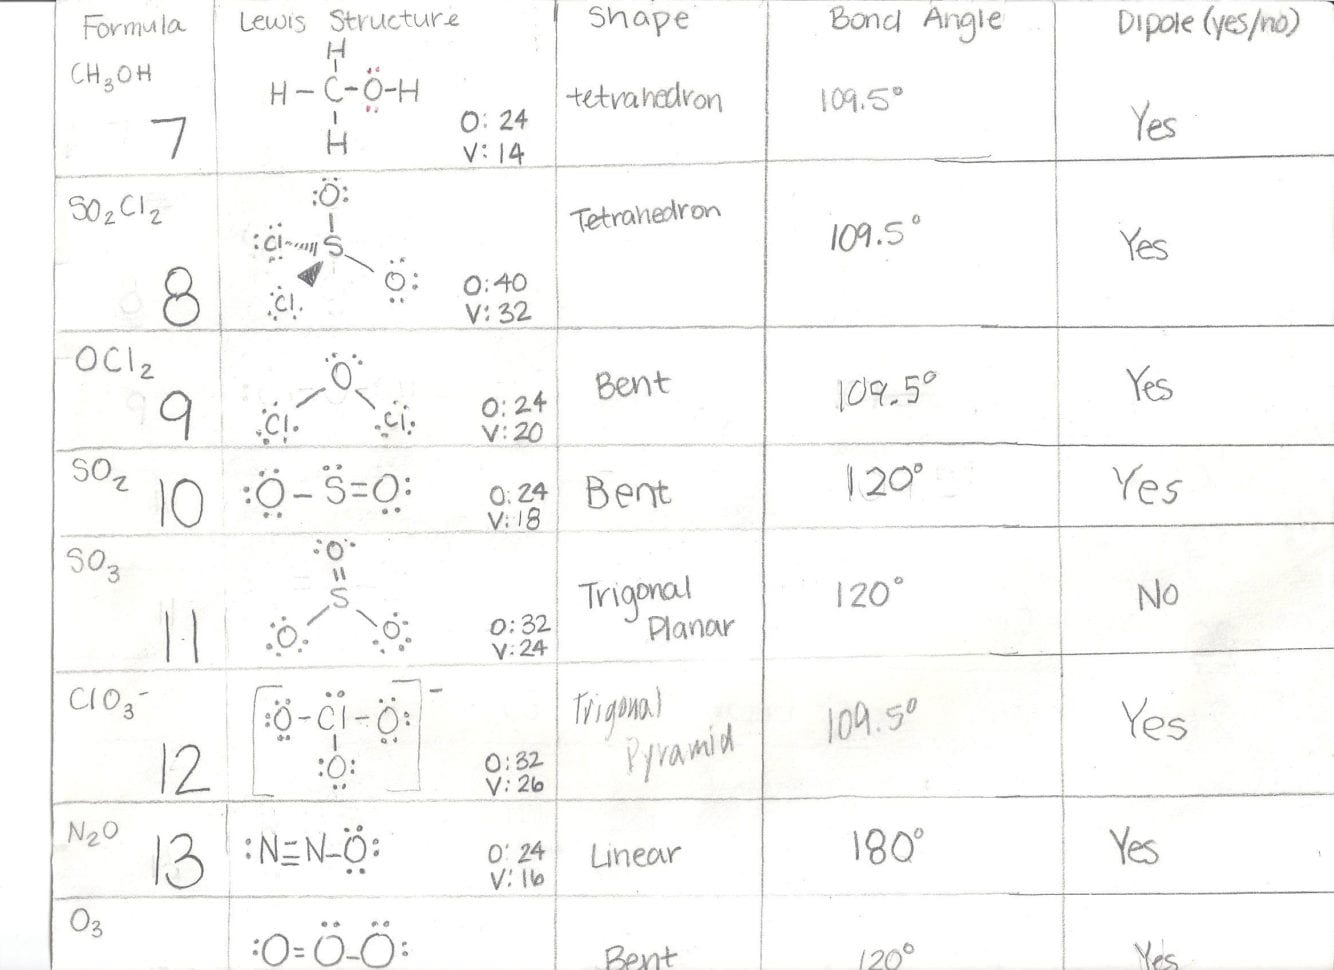 Formula Lewis Structure Shape Bond Angle Dipole (yes/no)
CH3OH
H
H-C-O-H
H
O: 24
V: 14
tetrahedron 109.5° Yes
7
SO2Cl2
O
Cl S
O
Cl
O: 40
V: 32
Tetrahedron 109.5° Yes
8
OCl2
O
Cl Cl
O: 24
V: 20
Bent 109.5° Yes
9
SO2
O-S=O
O: 24
V: 18
Bent 120° Yes
10
SO3
O
=
S
O O
O: 32
V: 24
Trigonal
Planar
120° No
11
ClO3-
[O-Cl-O]-
O
O: 32
V: 26
Trigonal
Pyramid
109.5° Yes
12
N2O
:N≡N-O:
O: 24
V: 16
Linear 180° Yes
13
O3
:O=O-O:
Bent 120° Yes